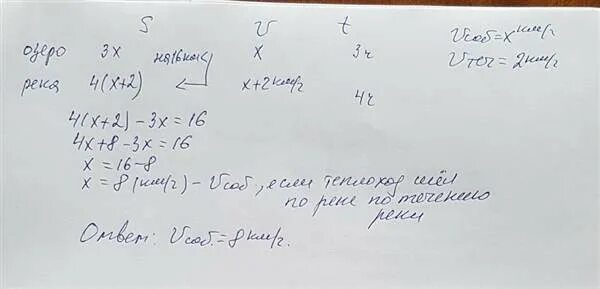 S V t Vсоб=x км/ч
озеро 3x на 16 км x 3ч Vтеч = 2км/ч
река 4(x+2) x+2км/ч 4ч
4(x+2) - 3x = 16
4x+8-3x=16
x = 16-8
x = 8 (км/ч) - Vсоб, если теплоход шёл
по реке по течению
реки
Ответ: Vсоб.=8 км/ч.